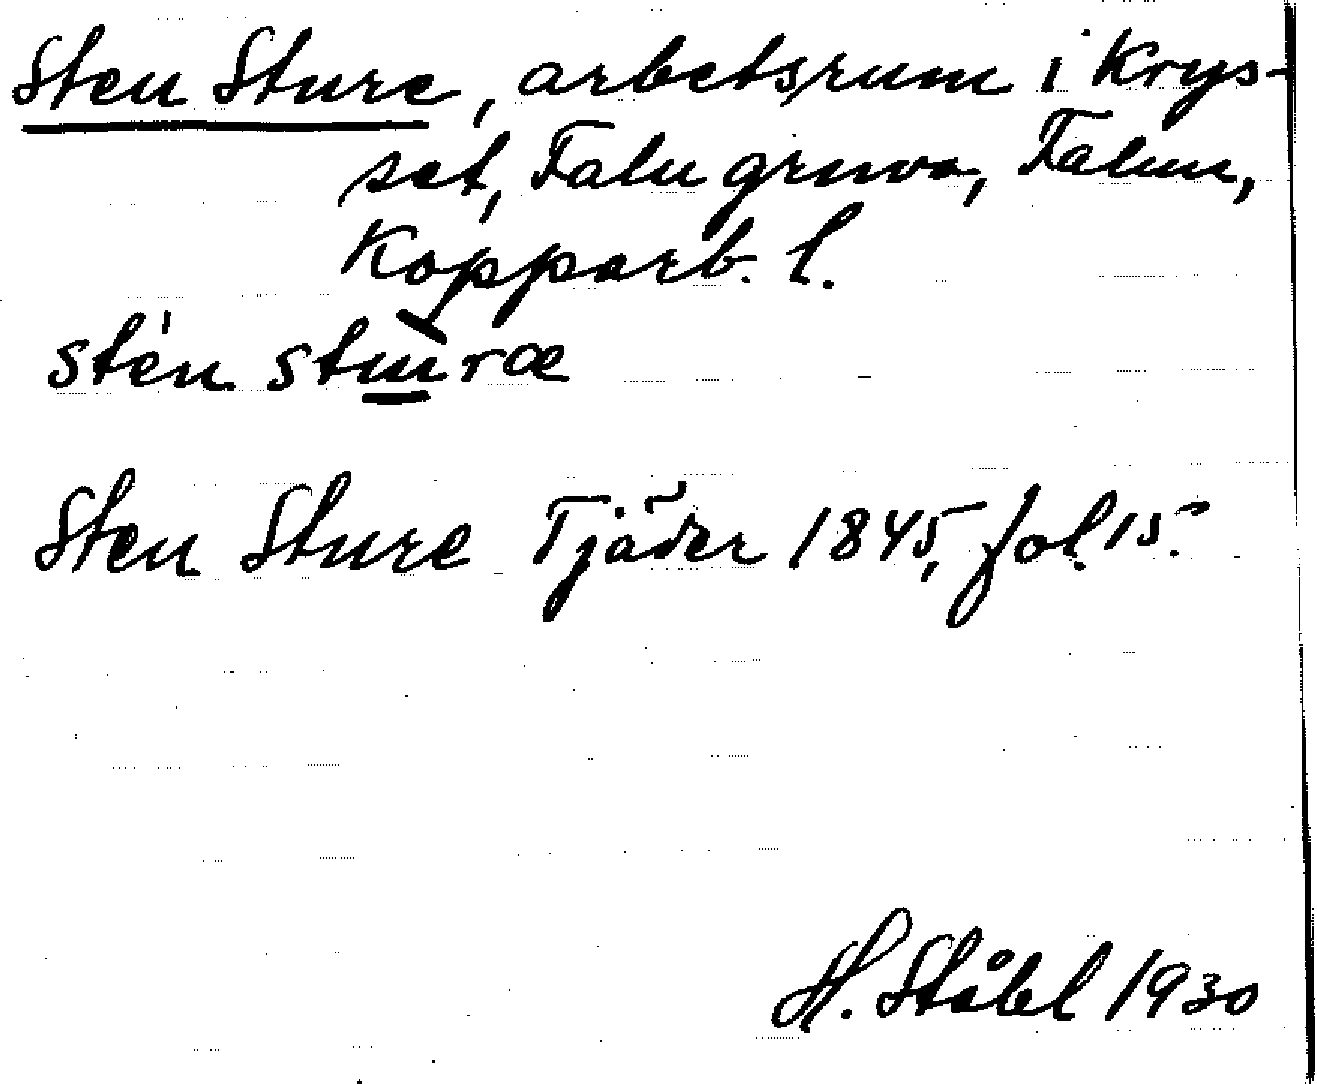 Sten Sture, arbetsrum i Krys-
set, Falu gruva, Falun,
Kopparb. l.
stèn stùræ
Sten Sture Tjäder 1845, fol. 15.
H. Ståhl 1930